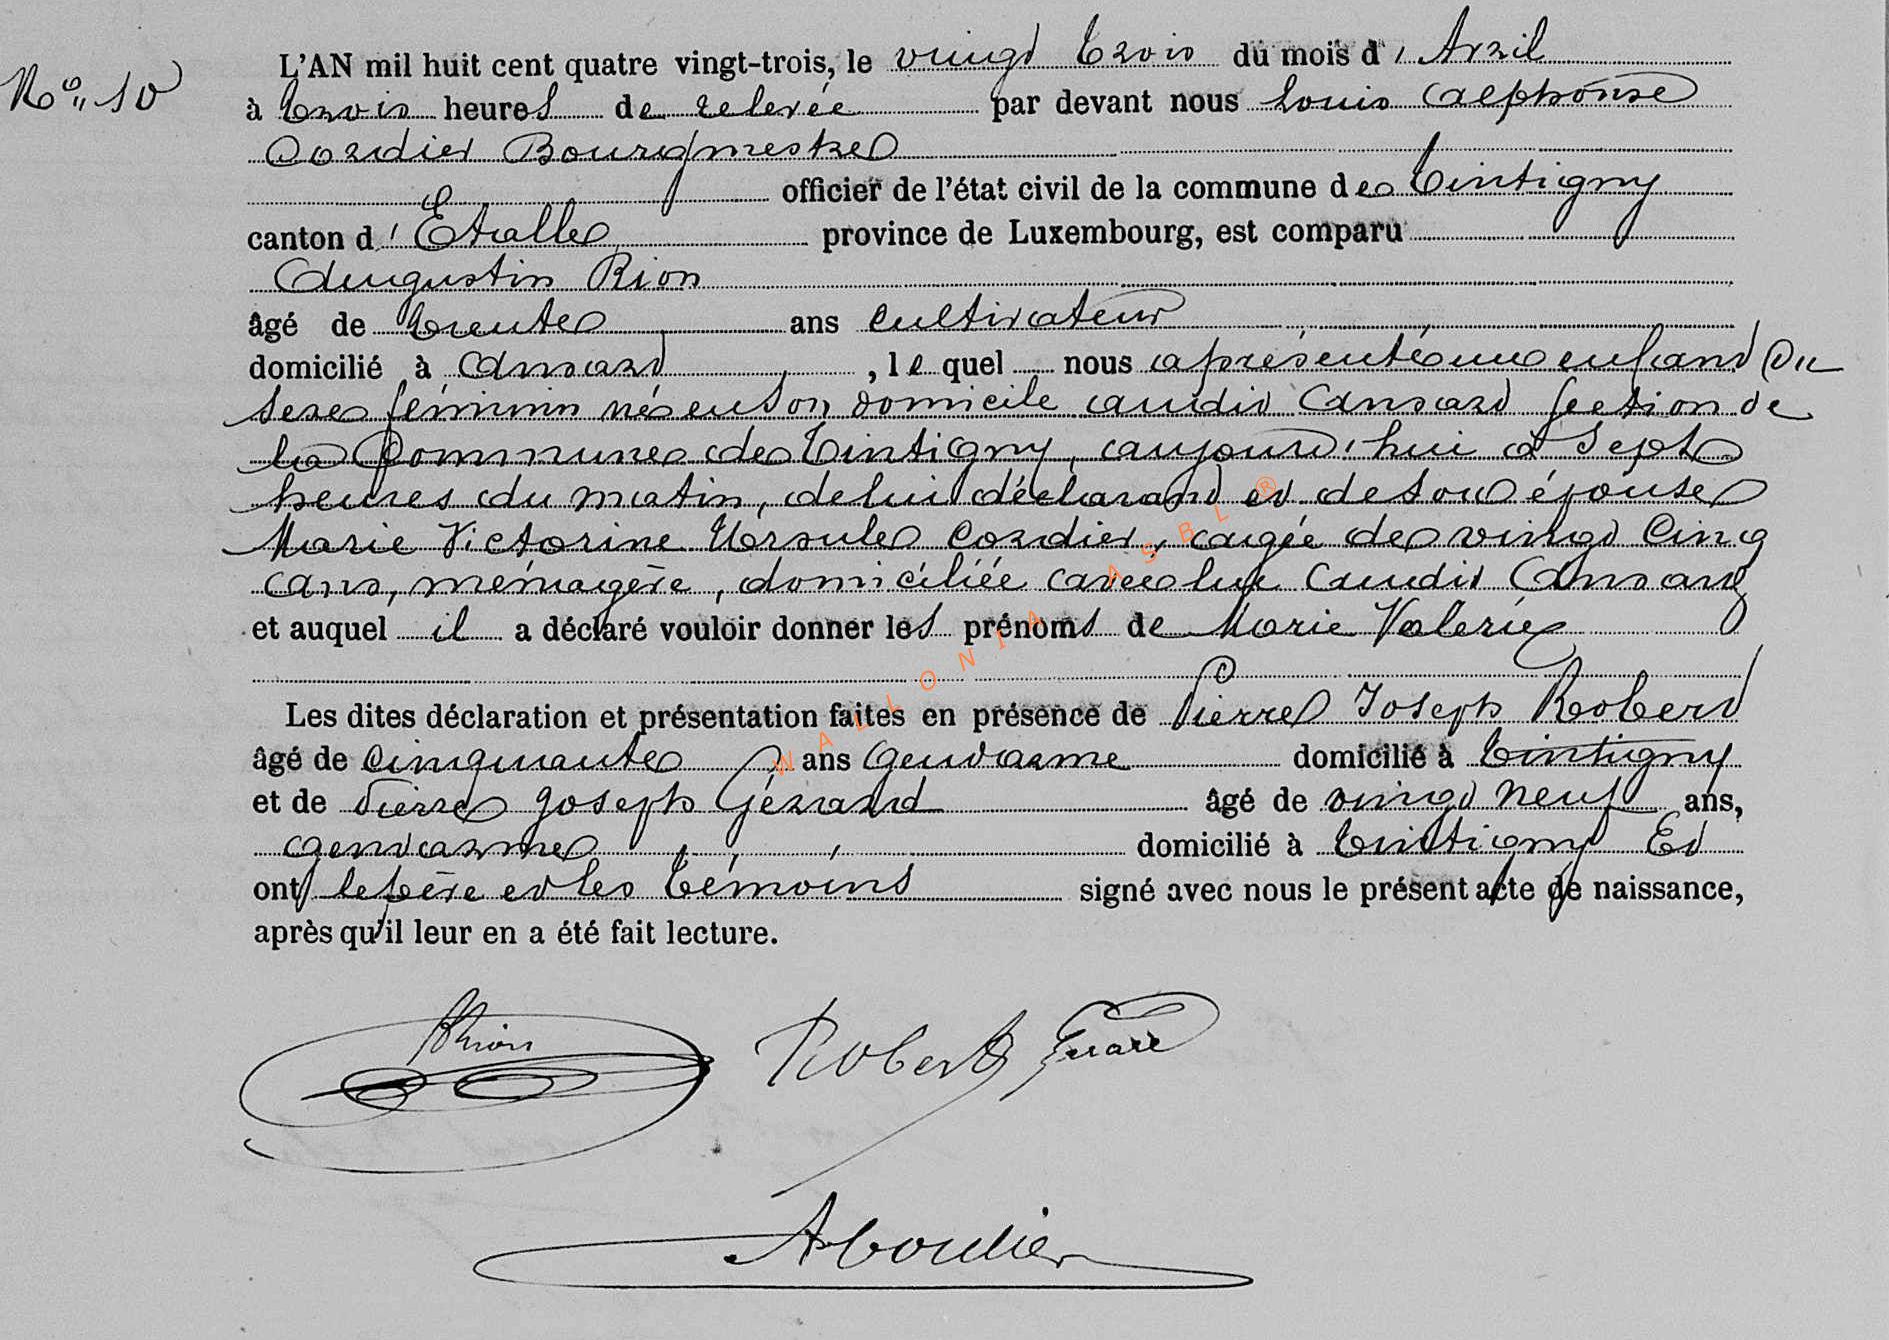 No 10
L'AN mil huit cent quatre vingt-trois, le vingt trois du mois d' Avril
à trois heures de relevée par devant nous Louis Alphonse
Cordier Bourgmestre
officier de l'état civil de la commune de Tintigny
canton d' Etalle province de Luxembourg, est comparu
Augustin Rion
âgé de trente ans cultivateur
domicilié à Ansart, lequel nous a présenté un enfant du
sexe féminin né en son domicile audit Ansart section de
la Commune de Tintigny, aujourd'hui à sept
heures du matin, de lui déclarant et de son épouse
Marie Victorine Ursule Cordier, agée de vingt cinq
ans, ménagère, domiciliée avec lui audit Ansart
et auquel il a déclaré vouloir donner les prénoms de Marie Valerie
Les dites déclaration et présentation faites en présence de Pierre Joseph Robert
âgé de cinquante ans Gendarme domicilié à Tintigny
et de Pierre Joseph Gérard âgé de vingt neuf ans,
gendarme domicilié à Tintigny Et
ont le père et les témoins signé avec nous le présent acte de naissance,
après qu'il leur en a été fait lecture.
Robert
ACordier
WALLONIA ASBL ®